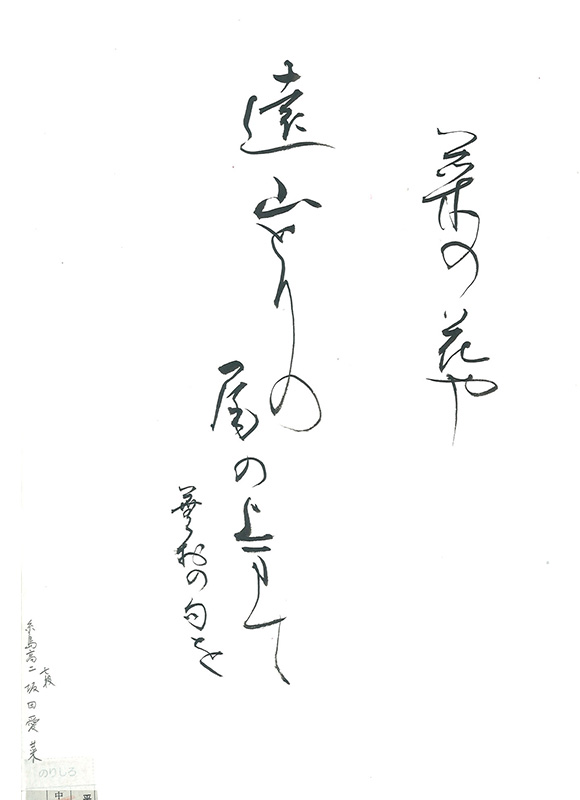 菜の花や
遠山とりの
尾の上まて
蕪村の句を
糸島高二 七段 坂田愛菜
のりしろ
中